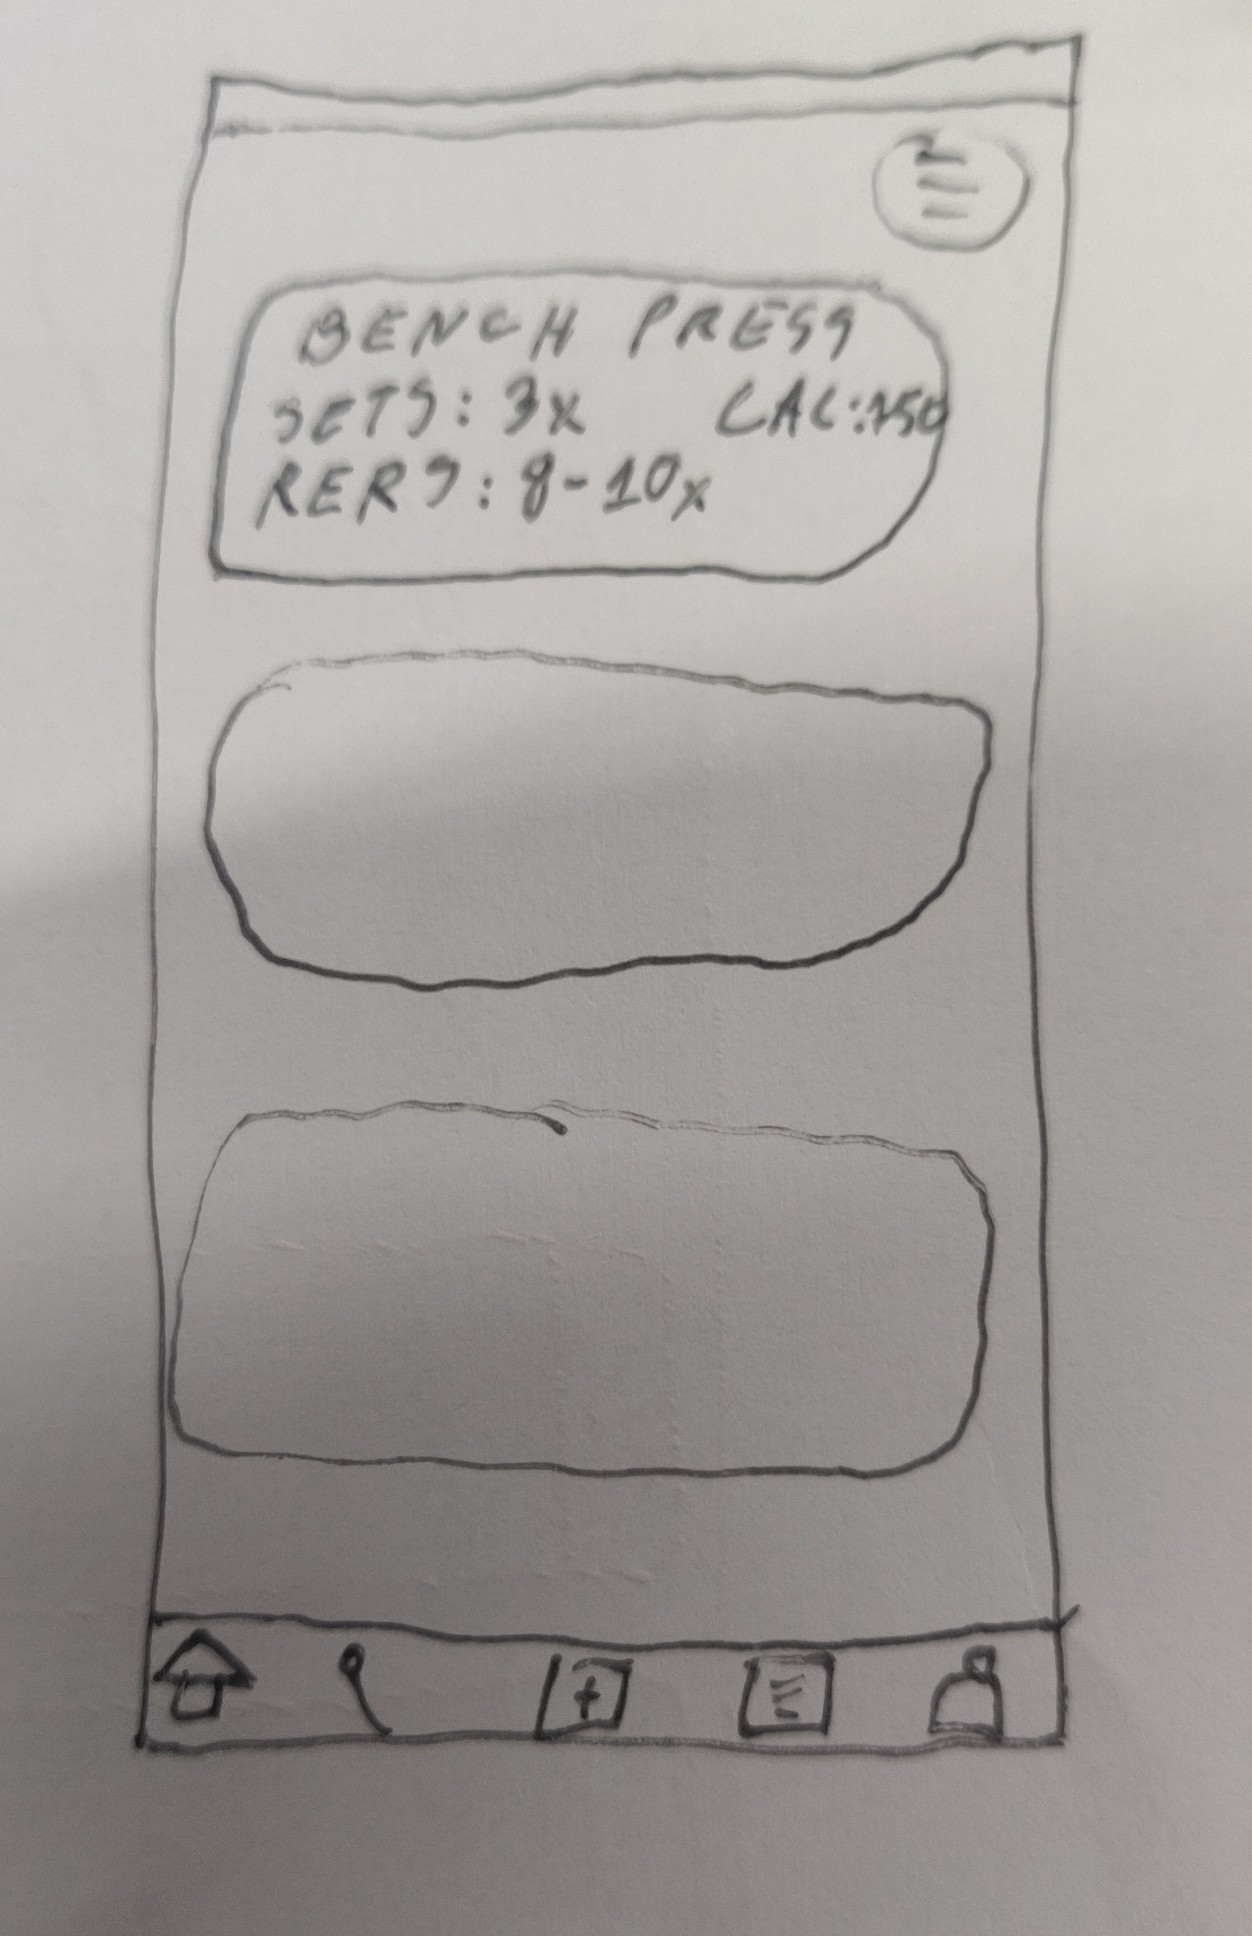 BENCH PRESS
SETS: 3x CAL:150
RERS: 8-10x